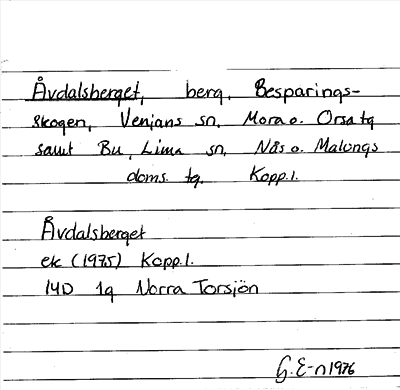 Åvdalsberget, berg, Besparings-
skogen, Venjans sn, Mora o. Orsa tg
samt Bu, Lima sn, Nås o. Malungs
doms. tg. Kopp.l.
Åvdalsberget
ek (1975) Kopp.l.
14D 1q Norra Torsjön
G. E-n 1976